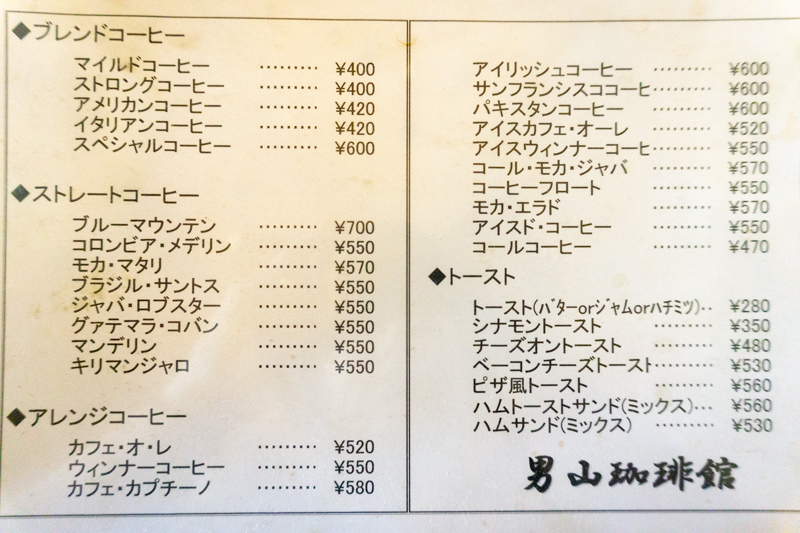 ◆ブレンドコーヒー
マイルドコーヒー ……… ¥400
ストロングコーヒー ……… ¥400
アメリカンコーヒー ……… ¥420
イタリアンコーヒー ……… ¥420
スペシャルコーヒー ……… ¥600
◆ストレートコーヒー
ブルーマウンテン ……… ¥700
コロンビア・メデリン ……… ¥550
モカ・マタリ ……… ¥570
ブラジル・サントス ……… ¥550
ジャバ・ロブスター ……… ¥550
グァテマラ・コバン ……… ¥550
マンデリン ……… ¥550
キリマンジャロ ……… ¥550
◆アレンジコーヒー
カフェ・オ・レ ……… ¥520
ウィンナーコーヒー ……… ¥550
カフェ・カプチーノ ……… ¥580
アイリッシュコーヒー ……… ¥600
サンフランシスココーヒ……… ¥600
パキスタンコーヒー ……… ¥600
アイスカフェ・オーレ ……… ¥520
アイスウィンナーコーヒ……… ¥550
コール・モカ・ジャバ ……… ¥570
コーヒーフロート ……… ¥550
モカ・エラド ……… ¥570
アイスド・コーヒー ……… ¥550
コールコーヒー ……… ¥470
◆トースト
トースト(ﾊﾞﾀｰorｼﾞｬﾑorﾊﾁﾐﾂ)‥ ¥280
シナモントースト ……… ¥350
チーズオントースト ……… ¥480
ベーコンチーズトースト……… ¥530
ピザ風トースト ……… ¥560
ハムトーストサンド(ミックス)… ¥560
ハムサンド(ミックス) ……… ¥530
男山珈琲館